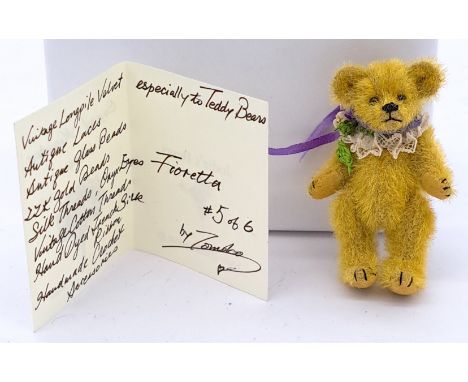 Vintage Longpile Velvet
Antique Laces
Antique Glass Beads
22K Gold Beads
Silk Threads, Onyx Eyes
Vintage Cotton Threads
Hand Dyed French Silk
Ribbon
Handmade Bordex
Accessories
especially to Teddy Bears
Fioretta
#5 of 6
by